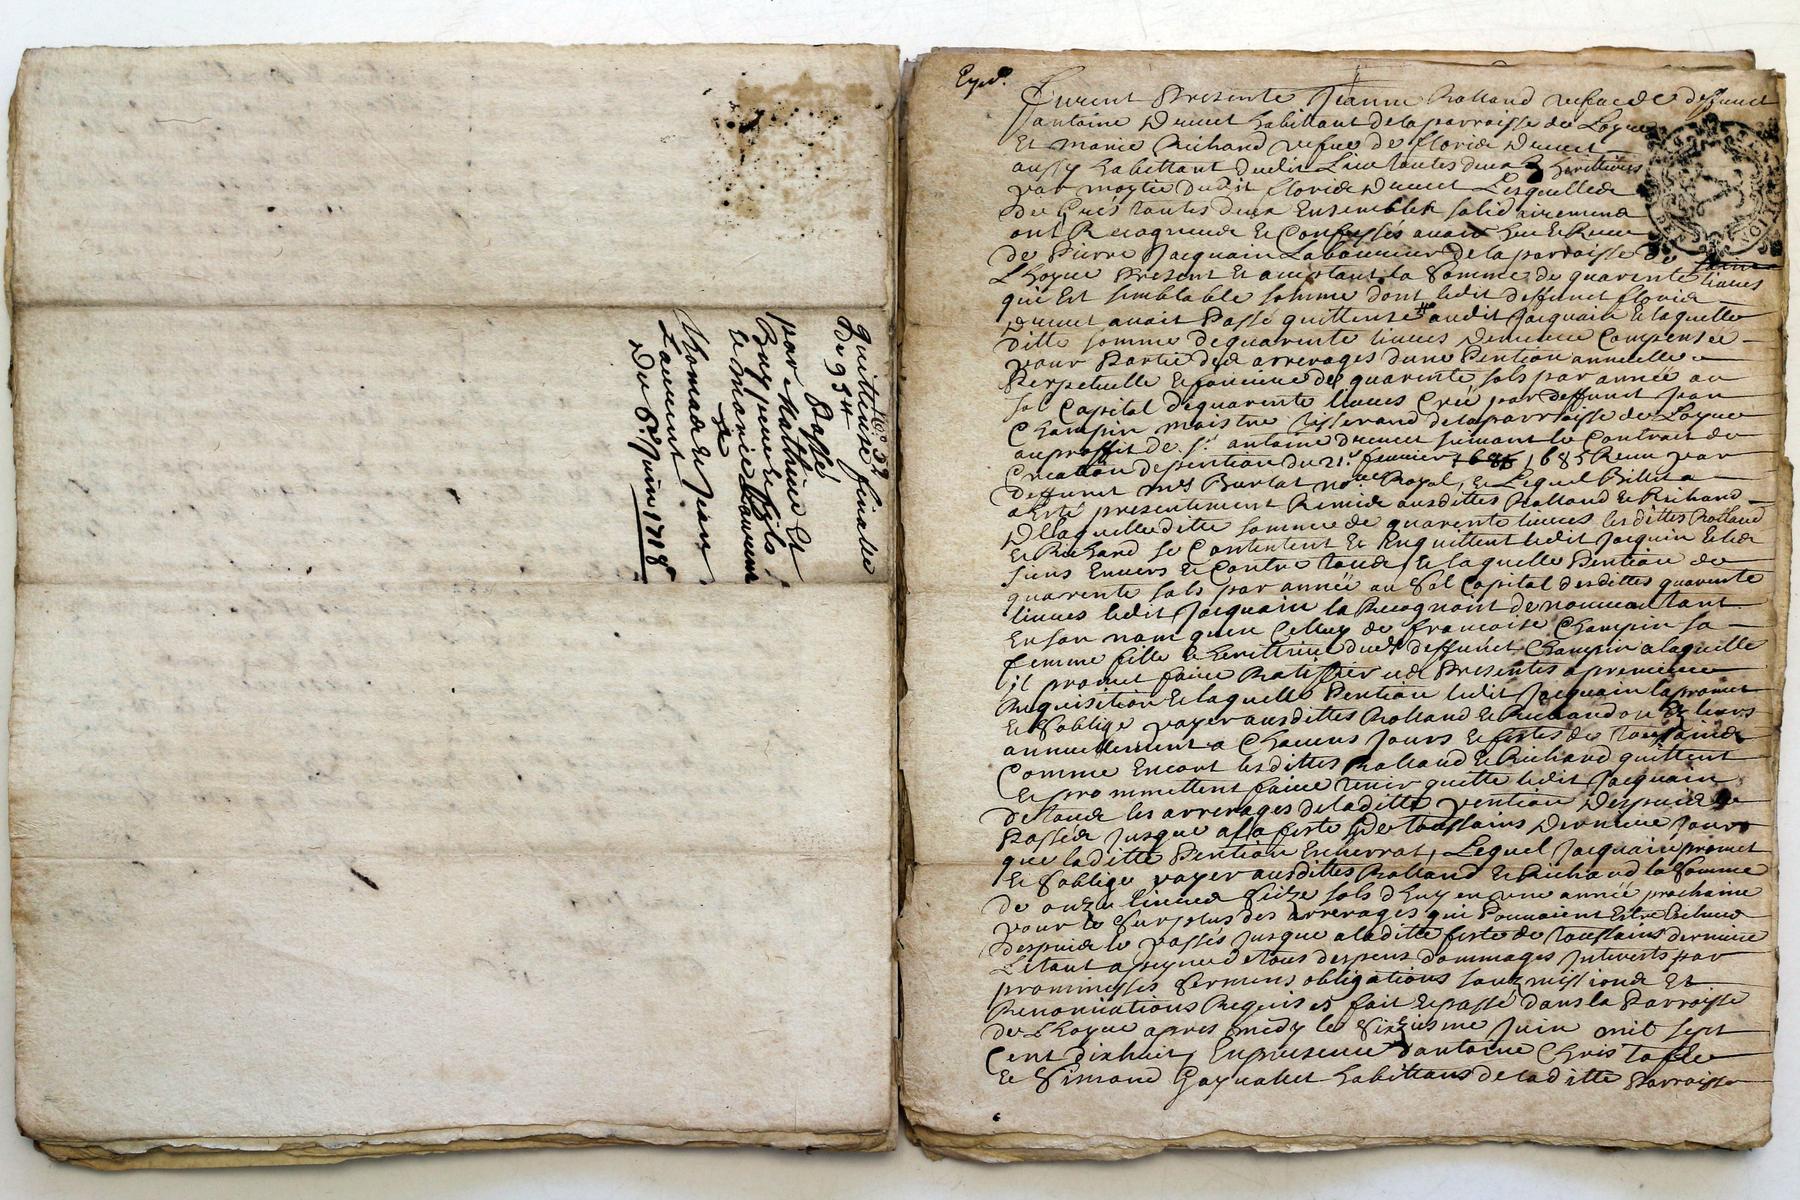 No. 32
Quittance finalle
De 95 lt
Passé
par Mathieu Et
Buy pere & fils
Et Marie Laurens
&
Thomas Et Jean
Laurent
Du 6e Juin 1718
Exped.
Furent Presente Jeanne Rolland vefve de deffunct
antoine Drevet habittant de la parroisse de Loyve
Et marie Richard vefve de floride Drevet
aussy habittant dudit Lieu toutes deux heritieres
par moytie dudit floride Drevet Lesquelles
De Grés toutes deux Ensembles solidairement
ont Recogneude Et Confessés avoir heu & Receu
de Pierre Jacquain Laboureur de la parroisse de
L'hoyve Present Et aceptant la Somme de quarente livres
qui Est semblable somme dont ledit deffunct floride
Drevet avoit Passé quittense audit Jacquain & laquelle
ditte somme de quarente livres Demeure Compensée
pour Partie des arrerages dune Pention annuelle
Perpetuelle & fonciere de quarente sols par année au
sol Capital de quarente livres Créé par deffunct Jean
Champin maistre tisserand de la parroisse de Loyve
au proffit de Sr. antoine Drevet suivant le Contrait de
Creation de pention du 21e fevrier 1685 Receu par
deffunct me Burlat nore Royal, & Lequel Billet a
a Esté presentement Remis ausdittes Rolland & Richard
De laquelle ditte somme de quarente livres lesdittes Rolland
& Richard se Contentent & En quittent ledit Jacquin & les
siens Envers & Contre tous & laquelle Pention de
quarente sols par année au Sol Capital desdittes quarente
livres ledit Jacquain la Recognoit de nouveau tant
En son nom qu'en Celluy de francoise Champin sa
femme fille & heritiere dudt deffunct Champin a laquelle
il promet faire Ratiffier ces Presentes a premiere
Requisition & laquelle Pention ledit Jacquain la promet
& S'oblige payer ausdittes Rolland & Richard ou Es leurs
annuellement a Chacuns Jours & festes de Toussaincts
Comme Encore lesdittes Rolland & Richard quittent
& prommettent faire tenir quitte ledit Jacquain
de tous les arrerages de laditte pention Despuis le
Passés Jusque a la feste de Toussains Derniere Jour
que laditte Pention Escherrat, Lequel Jacquain promet
& S'oblige payer ausdittes Rolland & Richard la Somme
de onze livres Seize sols d'huy en une année prochaine
pour le Surplus des arrerages qui Pouvoient Estre Escheus
despuis le passés Jusque a laditte feste de Toussains derniere
Le tout a peyne de tous despens dommages Interests par
prommesses Sermens obligations soubmissions Et
Renonciations Requises fait & passé dans la Parroisse
de L'hoyve apres midy le Sixiesme Juin mil sept
Cent dixhuit, En presence d'antoine Christofle
& Simond Gaynallet habittans de laditte Parroisse